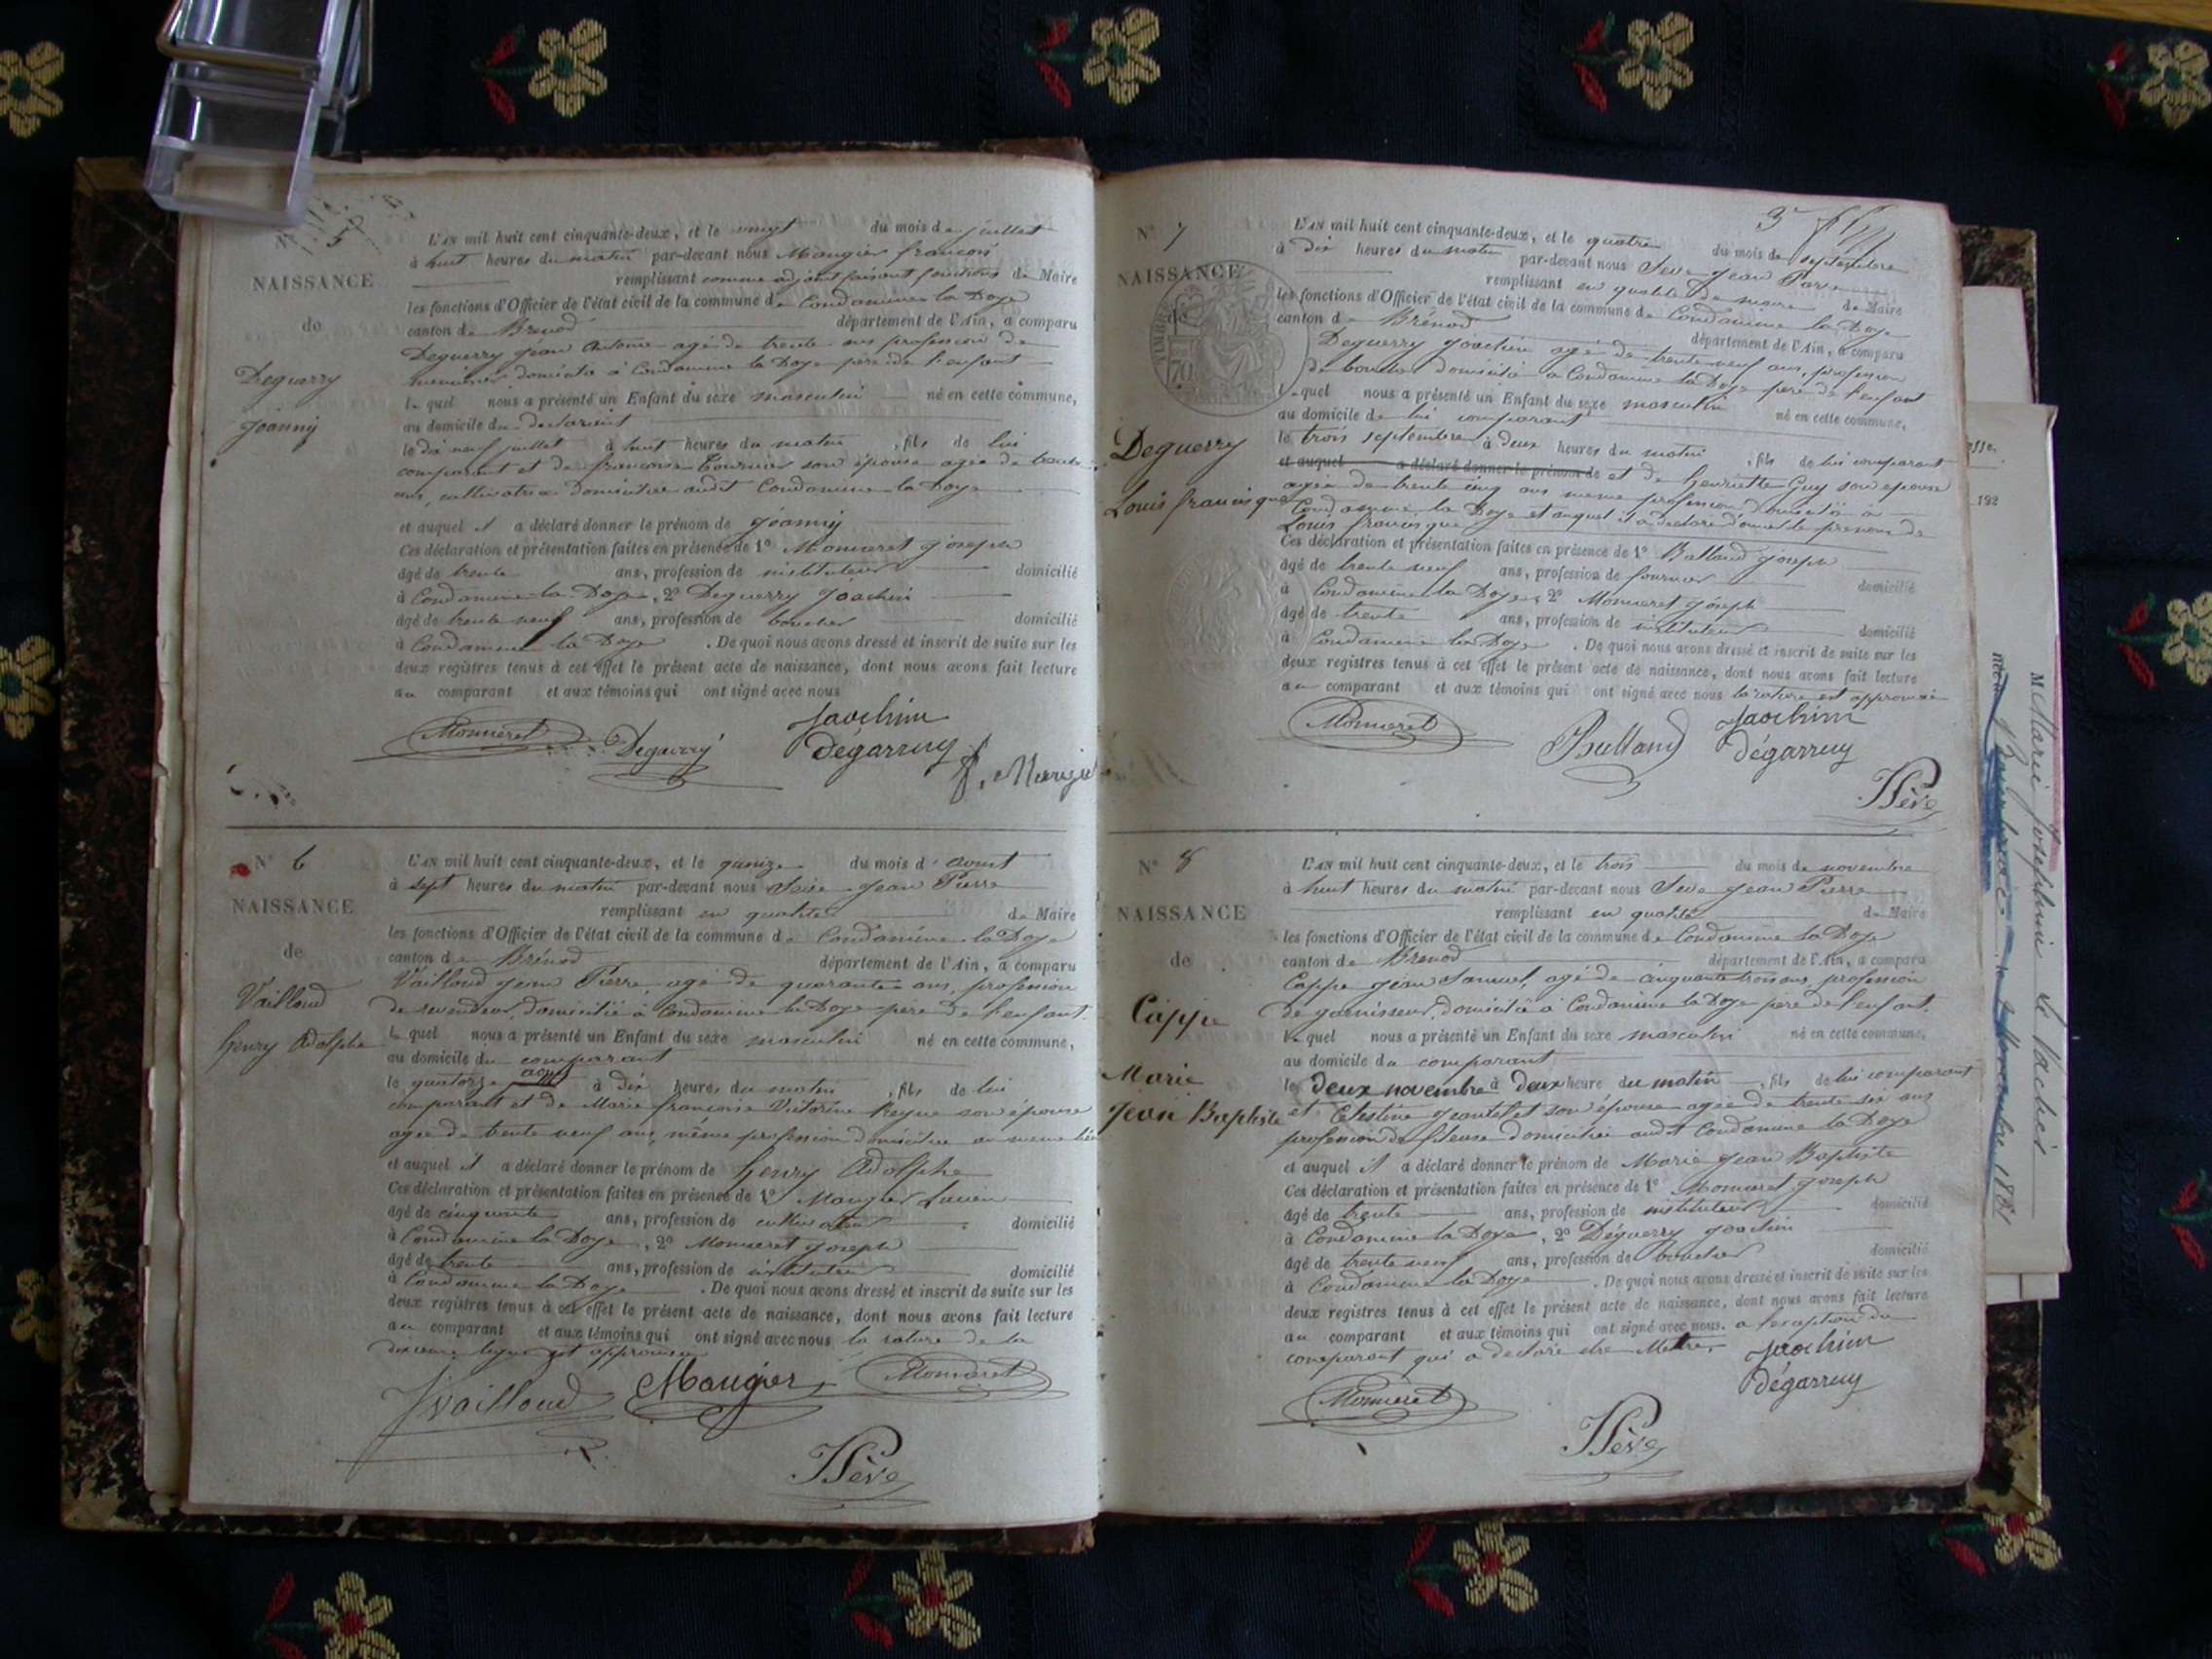 N° 5
NAISSANCE
de
Deguerry
Joanny
L'AN mil huit cent cinquante-deux, et le vingt du mois de juillet
à huit heures du matin par-devant nous Maugier françois
remplissant comme adjoint faisant fonctions de Maire
les fonctions d'Officier de l'état civil de la commune de Condamine la Doye
canton de Brenod département de l'Ain, a comparu
Deguerry Jean Antoine agé de trente ans profession de
menuisier domicilié à Condamine la Doye père de l'enfant
lequel nous a présenté un Enfant du sexe masculin né en cette commune,
au domicile du déclarant
le dix neuf juillet à huit heures du matin, fils de lui
comparant et de françoise Tournier son épouse agée de trente
ans, cultivatrice domiciliée audit Condamine la Doye
et auquel il a déclaré donner le prénom de Joanny
Ces déclaration et présentation faites en présence de 1° Monneret Joseph
âgé de trente ans, profession de instituteur domicilié
à Condamine la Doye, 2° Deguerry Joachin
âgé de trente neuf ans, profession de boucher domicilié
à Condamine la Doye. De quoi nous avons dressé et inscrit de suite sur les
deux registres tenus à cet effet le présent acte de naissance, dont nous avons fait lecture
au comparant et aux témoins qui ont signé avec nous
Monneret Deguerry Jaochim
dégarruy
N° 6
NAISSANCE
de
Vailloud
henry Adolphe
L'AN mil huit cent cinquante-deux, et le quinze du mois d'Aout
à sept heures du matin par-devant nous Seve Jean Pierre
remplissant en qualité de Maire
les fonctions d'Officier de l'état civil de la commune de Condamine la Doye
canton de Brénod département de l'Ain, a comparu
Vailloud Jean Pierre, agé de quarante ans, profession
de revendeur, domicilié à Condamine la Doye père de l'enfant.
lequel nous a présenté un Enfant du sexe masculin né en cette commune,
au domicile du comparant
le quatorze aout à dix heures du matin, fils de lui
comparant et de Marie françoise Victorine Reyne son épouse
agée de trente neuf ans, même profession domiciliée au même lieu
et auquel il a déclaré donner le prénom de henry Adolphe
Ces déclaration et présentation faites en présence de 1° Maugier Lucien
âgé de cinquante ans, profession de cultivateur domicilié
à Condamine la Doye, 2° Monneret Joseph
âgé de trente ans, profession de instituteur domicilié
à Condamine la Doye. De quoi nous avons dressé et inscrit de suite sur les
deux registres tenus à cet effet le présent acte de naissance, dont nous avons fait lecture
au comparant et aux témoins qui ont signé avec nous la rature de la
dixième ligne est approuvée
Jvailloud Maugier Monneret
Sève
N° 7
NAISSANCE
de
Deguerry
Louis francisque
L'AN mil huit cent cinquante-deux, et le quatre du mois de septembre
à dix heures du matin par-devant nous Seve Jean Pierre
remplissant en qualité de maire de Maire
les fonctions d'Officier de l'état civil de la commune de Condamine la Doye
canton de Brénod département de l'Ain, a comparu
Deguerry Joachin agé de trente neuf ans, profession
de boucher domicilié à Condamine la Doye père de l'enfant
lequel nous a présenté un Enfant du sexe masculin né en cette commune,
au domicile de lui comparant
le trois septembre à deux heures du matin, fils de lui comparant
et auquel a déclaré donner le prénom de et de henriette Guy son épouse
agée de trente cinq ans même profession, domiciliée à
Condamine la Doye et auquel il a déclaré donner le prenom de
Louis francisque
Ces déclaration et présentation faites en présence de 1° Balland Joseph
âgé de trente neuf ans, profession de fournier domicilié
à Condamine la Doye, 2° Monneret Joseph
âgé de trente ans, profession de instituteur domicilié
à Condamine la Doye. De quoi nous avons dressé et inscrit de suite sur les
deux registres tenus à cet effet le présent acte de naissance, dont nous avons fait lecture
au comparant et aux témoins qui ont signé avec nous la rature est approuvée
Monneret Balland Jaochim
dégarruy
Sève
N° 8
NAISSANCE
de
Cappe
Marie
Jean Baptiste
L'AN mil huit cent cinquante-deux, et le trois du mois de novembre
à huit heures du matin par-devant nous Seve Jean Pierre
remplissant en qualité de Maire
les fonctions d'Officier de l'état civil de la commune de Condamine la Doye
canton de Brenod département de l'Ain, a comparu
Cappe Jean Samuel, agé de cinquante trois ans, profession
de garnisseur, domicilié à Condamine la Doye père de l'enfant.
lequel nous a présenté un Enfant du sexe masculin né en cette commune,
au domicile du comparant
le deux novembre à deux heure du matin, fils de lui comparant
et Celestine Jeantelet son épouse agée de trente six ans
profession de fileuse domiciliée audit Condamine la Doye
et auquel il a déclaré donner le prénom de Marie Jean Baptiste
Ces déclaration et présentation faites en présence de 1° Monneret Joseph
âgé de trente ans, profession de instituteur domicilié
à Condamine la Doye, 2° Déguerry Joachin
âgé de trente neuf ans, profession de boucher domicilié
à Condamine la Doye. De quoi nous avons dressé et inscrit de suite sur les
deux registres tenus à cet effet le présent acte de naissance, dont nous avons fait lecture
au comparant et aux témoins qui ont signé avec nous. a l'exception du
comparant qui a declaré être illettré.
Jaochim
dégarruy
Monneret Sève
192
M Marie Joséphine
novembre 1881